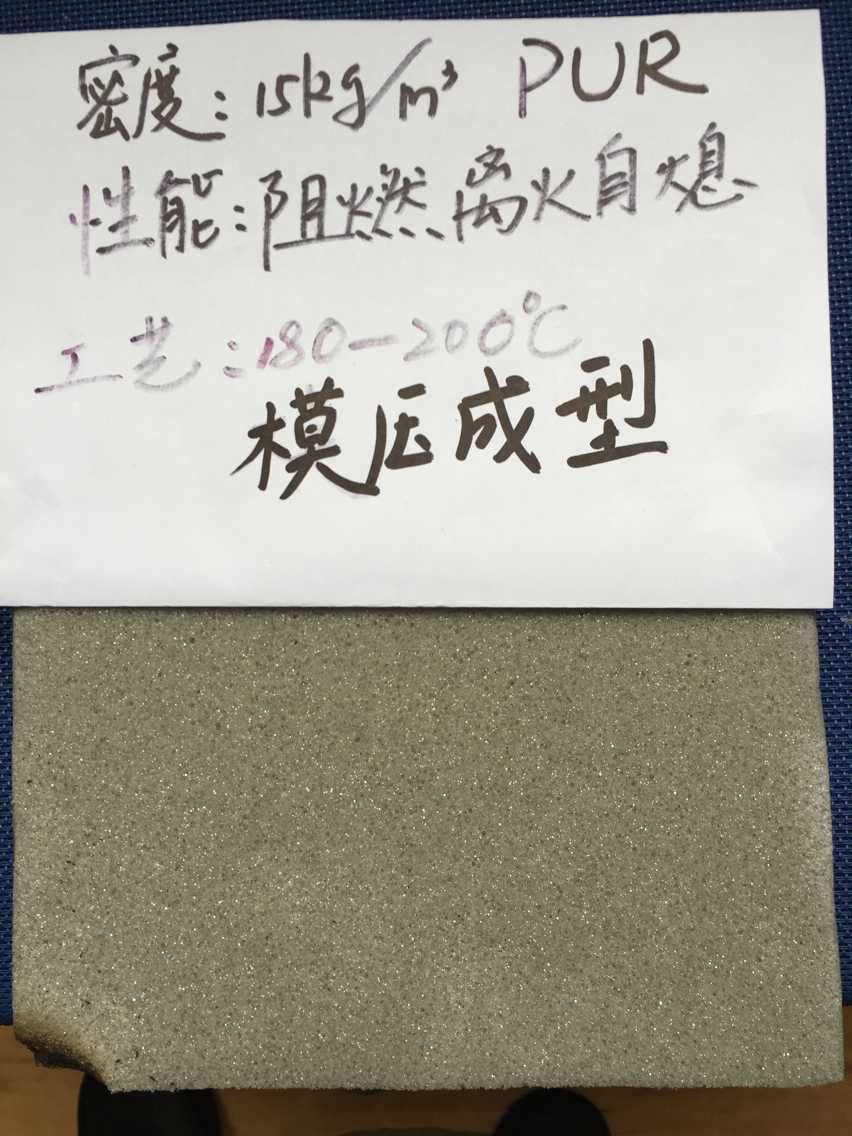 密度：15kg/m³ PUR
性能：阻燃离火自熄
工艺：180-200℃
模压成型